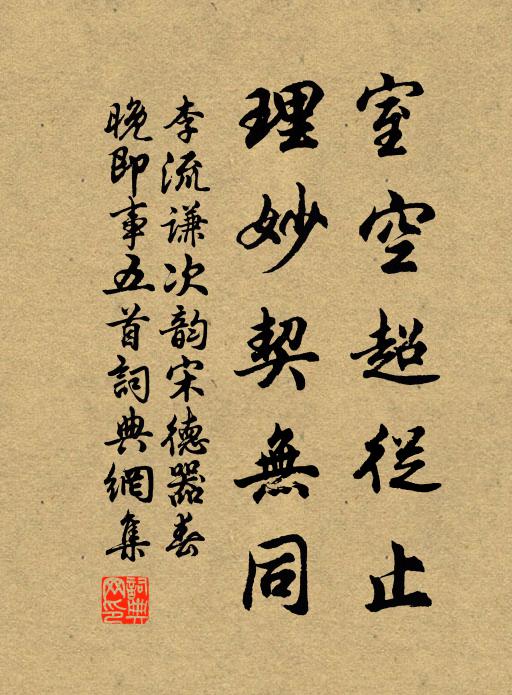 室空超從止
理妙契無同
李流谦次韵宋德器春
晚即事五首詞典網集
詞典网印